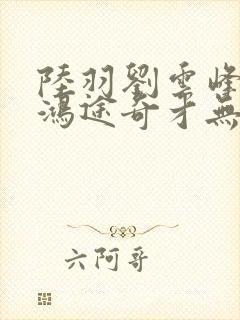 陸羽劉雲峰
鴻途奇才無
六阿哥